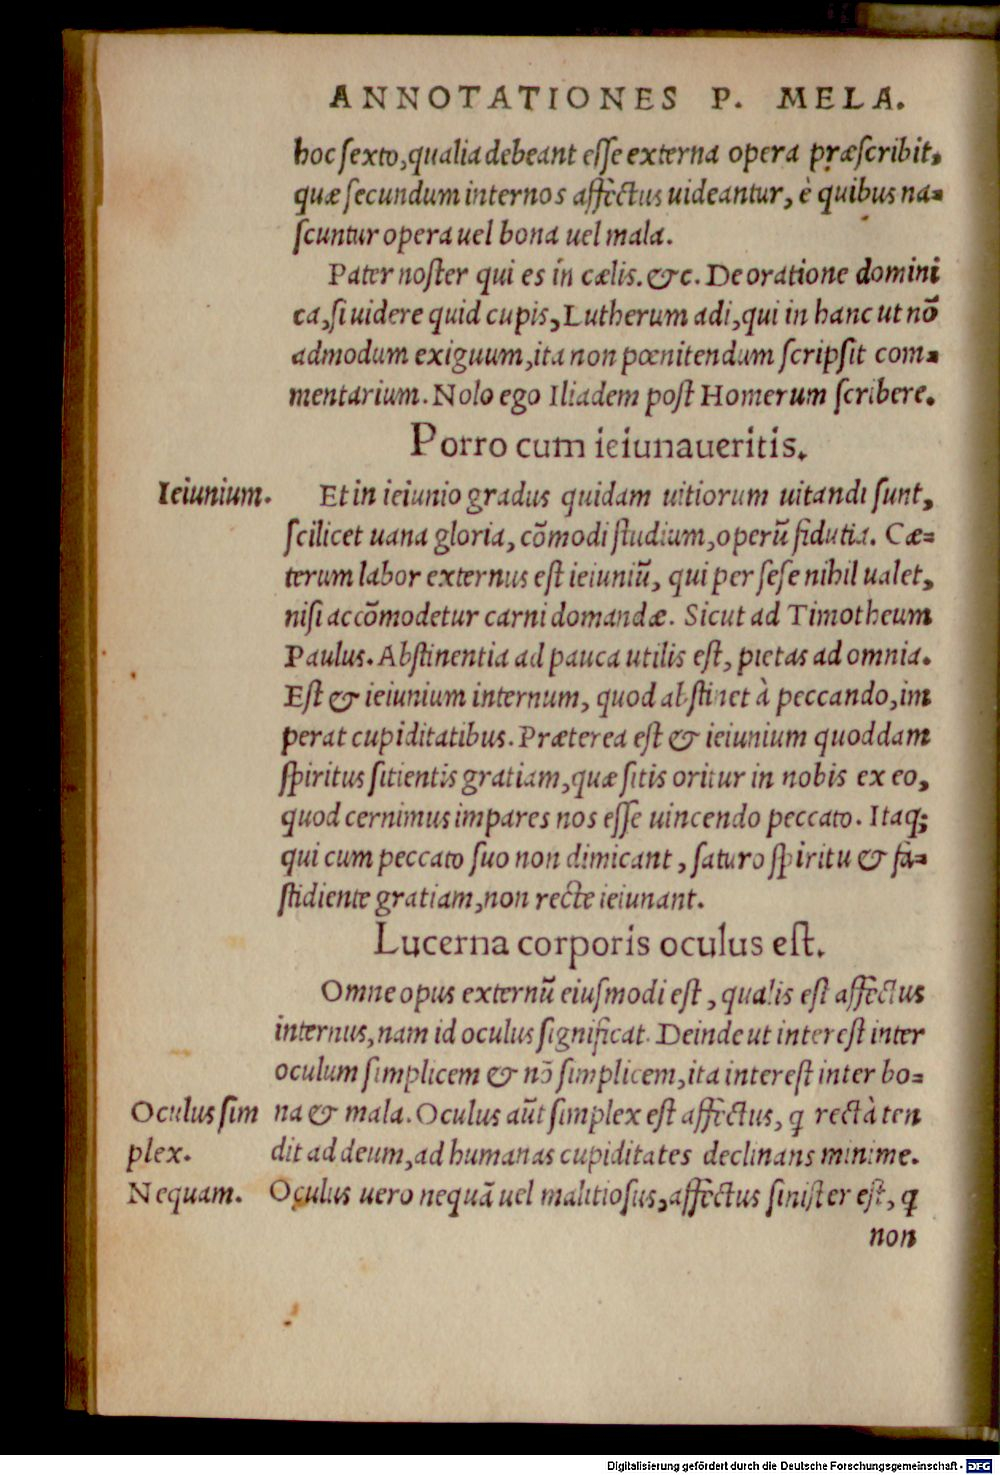 ANNOTATIONES P. MELA.
hoc sexto, qualia debeant esse externa opera præscribit,
quæ secundum internos affectus uideantur, è quibus na-
scuntur opera uel bona uel mala.
Pater noster qui es in cælis. &c. De oratione domini
ca, si uidere quid cupis, Lutherum adi, qui in hanc ut nõ
admodum exiguum, ita non pœnitendum scripsit com-
mentarium. Nolo ego Iliadem post Homerum scribere.
Porro cum ieiunaueritis.
Ieiunium. Et in ieiunio gradus quidam uitiorum uitandi sunt,
scilicet uana gloria, cõmodi studium, operũ fidutia. Cæ-
terum labor externus est ieiuniũ, qui per sese nihil ualet,
nisi accõmodetur carni domandæ. Sicut ad Timotheum
Paulus. Abstinentia ad pauca utilis est, pietas ad omnia.
Est & ieiunium internum, quod abstinet à peccando, im
perat cupiditatibus. Præterea est & ieiunium quoddam
spiritus sitientis gratiam, quæ sitis oritur in nobis ex eo,
quod cernimus impares nos esse uincendo peccato. Itaq;
qui cum peccato suo non dimicant, saturo spiritu & fa-
stidiente gratiam, non recte ieiunant.
Lucerna corporis oculus est.
Omne opus externũ eiusmodi est, qualis est affectus
internus, nam id oculus significat. Deinde ut interest inter
oculum simplicem & nõ simplicem, ita interest inter bo-
Oculus sim na & mala. Oculus aũt simplex est affectus, ꝗ rectà ten
plex. dit ad deum, ad humanas cupiditates declinans minime.
Nequam. Oculus uero nequã uel malitiosus, affectus sinister est, ꝗ
non
Digitalisierung gefördert durch die Deutsche Forschungsgemeinschaft - DFG